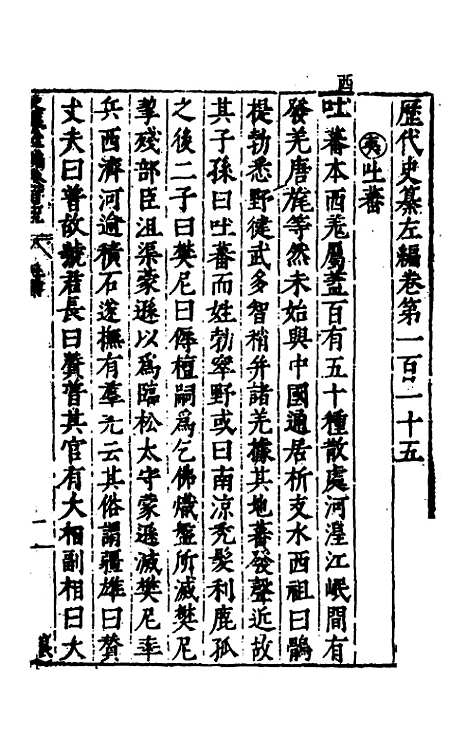 歷代史纂左編卷第一百二十五
夷 吐蕃
酉
吐蕃本西羗屬蓋百有五十種散處河湟江岷間有
發羗唐旄等然未始與中國通居析支水西祖曰鶻
提勃悉野健武多智稍并諸羗據其地蕃發聲近故
其子孫曰吐蕃而姓勃窣野或曰南凉禿髮利鹿孤
之後二子曰樊尼曰傉檀嗣爲乞佛熾盤所滅樊尼
挈殘部臣沮渠蒙遜以爲臨松太守蒙遜滅樊尼率
兵西濟河逾積石遂撫有羣羌云其俗謂彊雄曰贊
丈夫曰普故號君長曰贊普其官有大相副相曰大